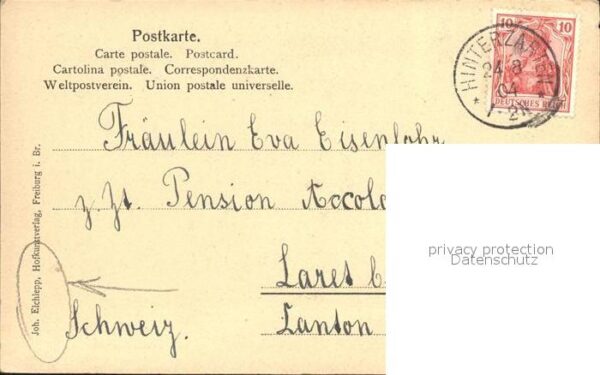 Postkarte.
Carte postale. Postcard.
Cartolina postale. Correspondenzkarte.
Weltpostverein. Union postale universelle.
10 10
DEUTSCHES REICH
HINTERZARTEN
24 8
04
1-2N
Fräulein Eva Eisenlohr
z. Zt. Pension Accola
Laret b
Schweiz. Kanton
Joh. Elchlepp, Hofkunstverlag, Freiburg i. Br.
privacy protection
Datenschutz